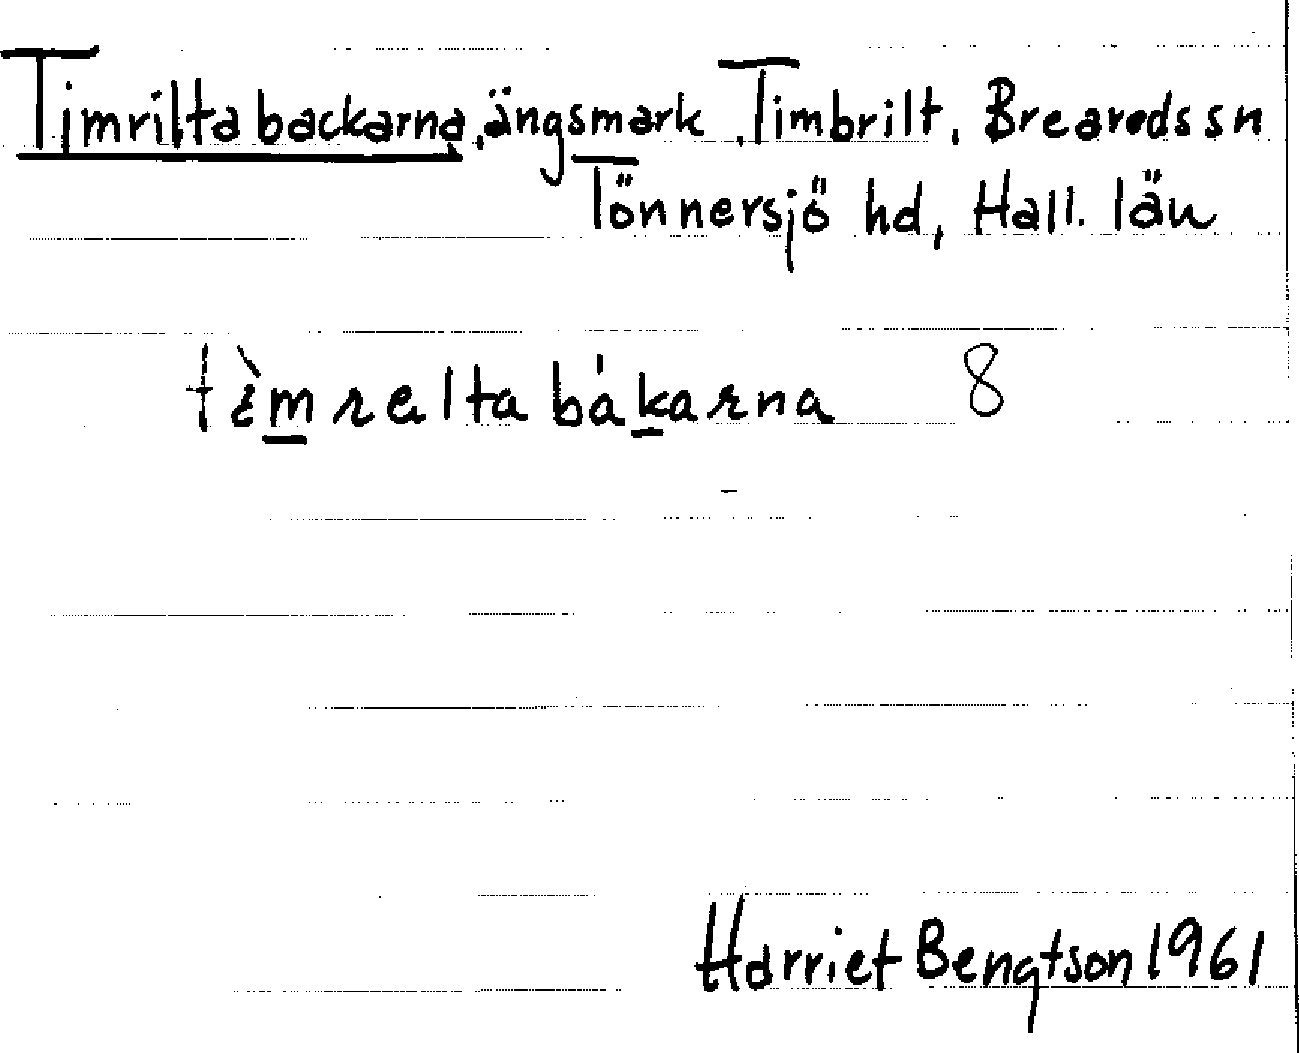 Timrilta backarna, ängsmark, Timbrilt, Breareds sn
Tönnersjö hd, Hall. län
tèmrelta bákarna 8
Harriet Bengtson 1961